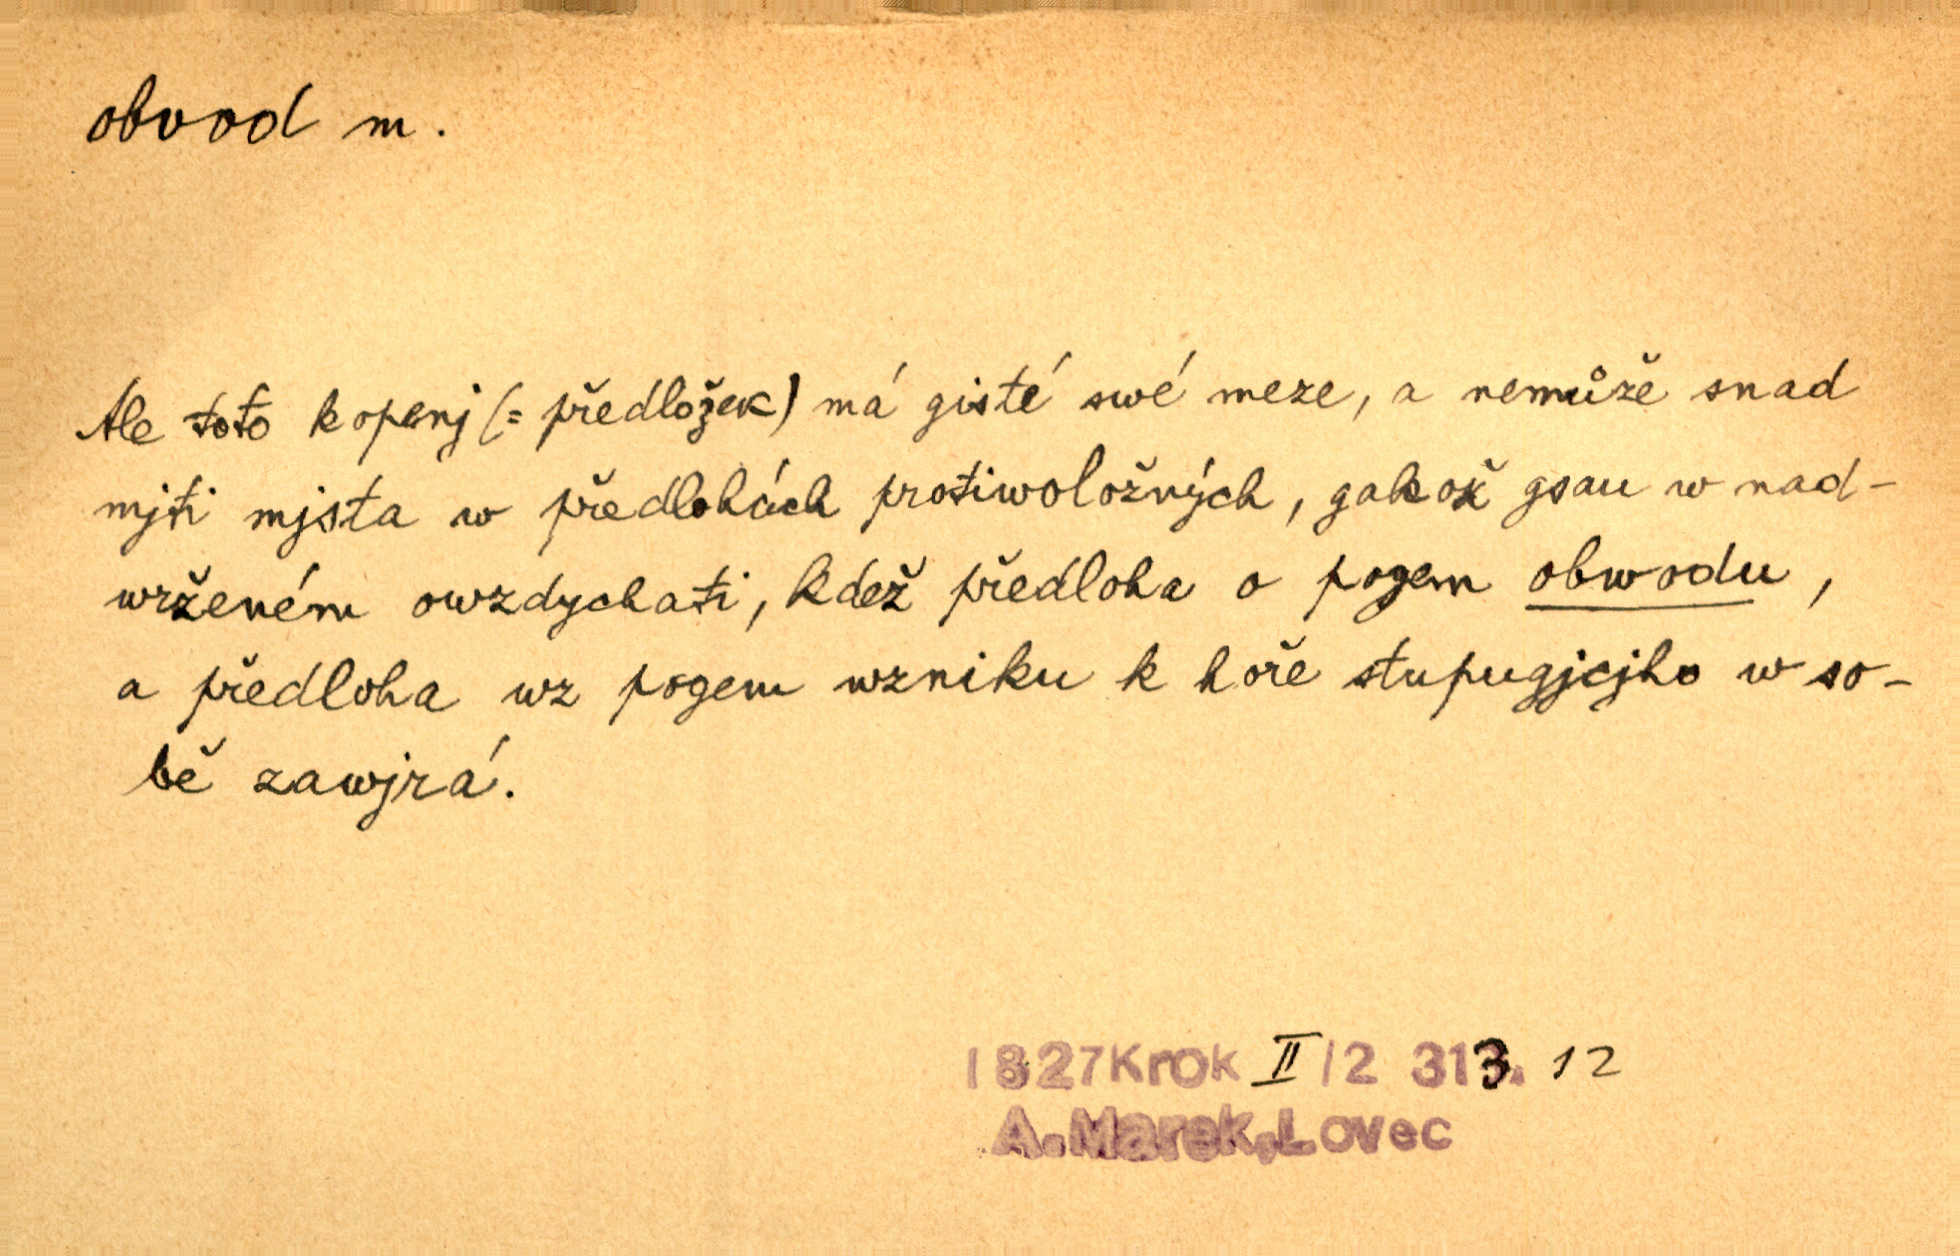 obvod m.
Ale toto kopenj (= předložek) má gisté swé meze, a nemůže snad
mjti mjsta w předlohách protiwoložných, gakož gsau w nad-
wrženém owzdychati, kdež předloha o pogem obwodu,
a předloha wz pogem wzniku k hoře stupugjcjho w so-
bě zawjrá.
1827 Krok II/2 313. 12
A. Marek, Lovec